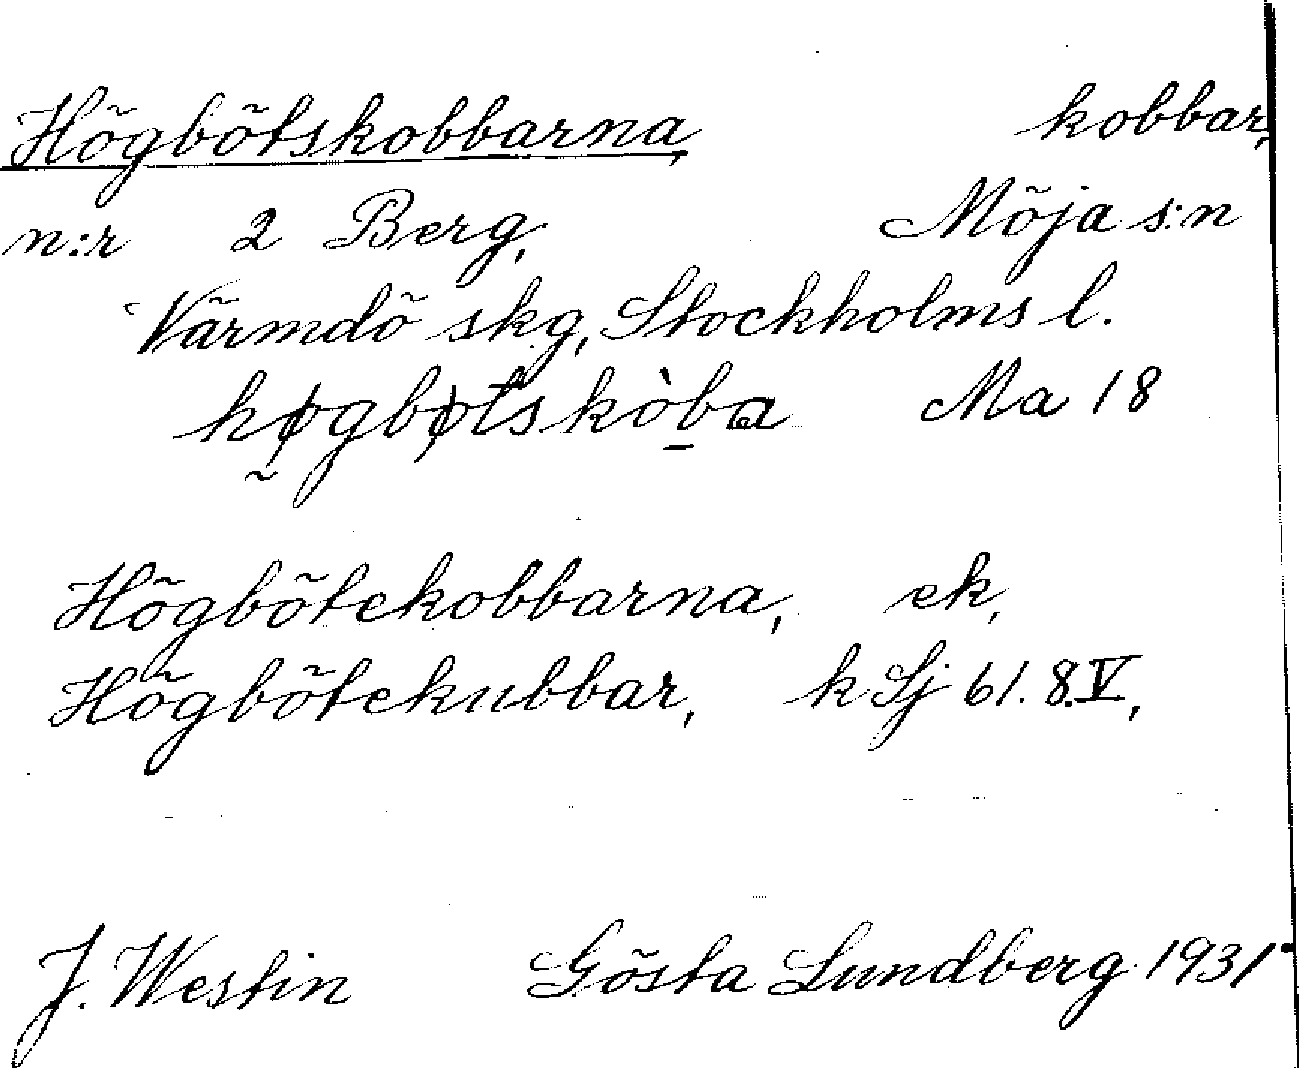 Högbötskobbarna, kobbar,
n:r 2 Berg, Möja s:n
Värmdö skg, Stockholms l.
høgbøtskòba Ma 18
Högbötekobbarna, ek,
Högbötekubbar, k Sj 61.8.V,
J. Westin Gösta Lundberg 1931